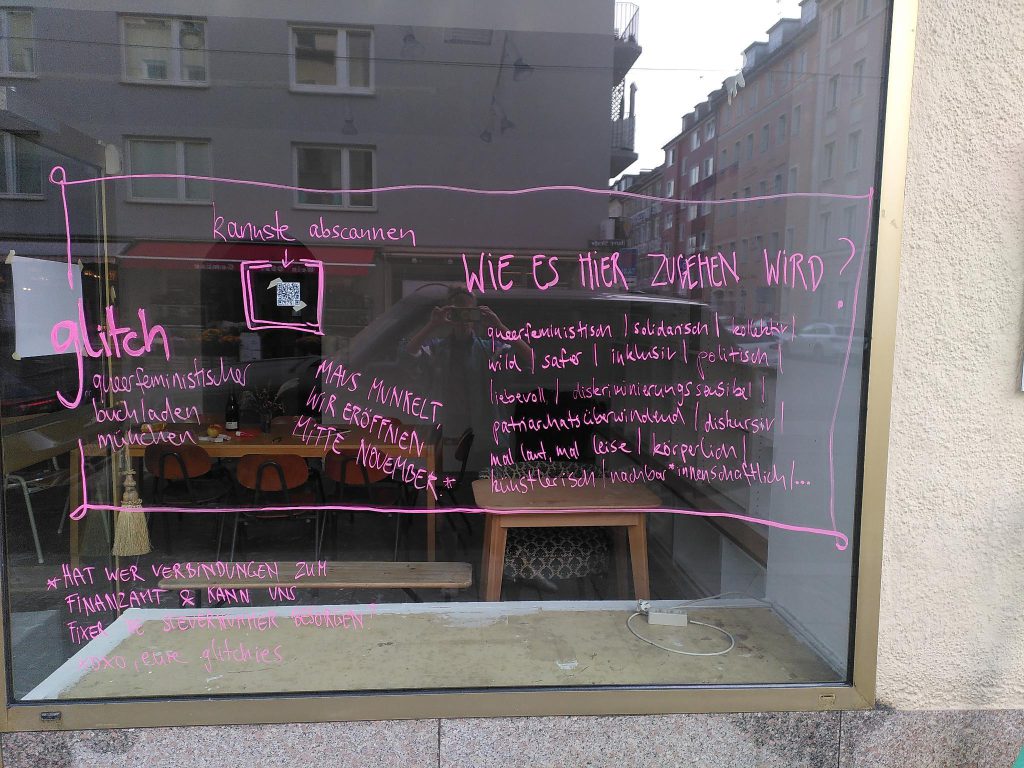 kannste abscannen
glitch
queerfeministischer
buchladen
münchen
MAUS MUNKELT,
WIR ERÖFFNEN
MITTE NOVEMBER.*
WIE ES HIER ZUGEHEN WIRD?
queerfeministisch / solidarisch / kollektiv /
wild / safer / inklusiv / politisch /
liebevoll / diskriminierungssensibel /
patriarchatsüberwindend / diskursiv /
mal laut, mal leise / körperlich /
künstlerisch / nachbar*innenschaftlich / ...
*HAT WER VERBINDUNGEN ZUM
FINANZAMT & KANN UNS
FIXER NE STEUERNUMMER BESORGEN?
xoxo, eure glitchies